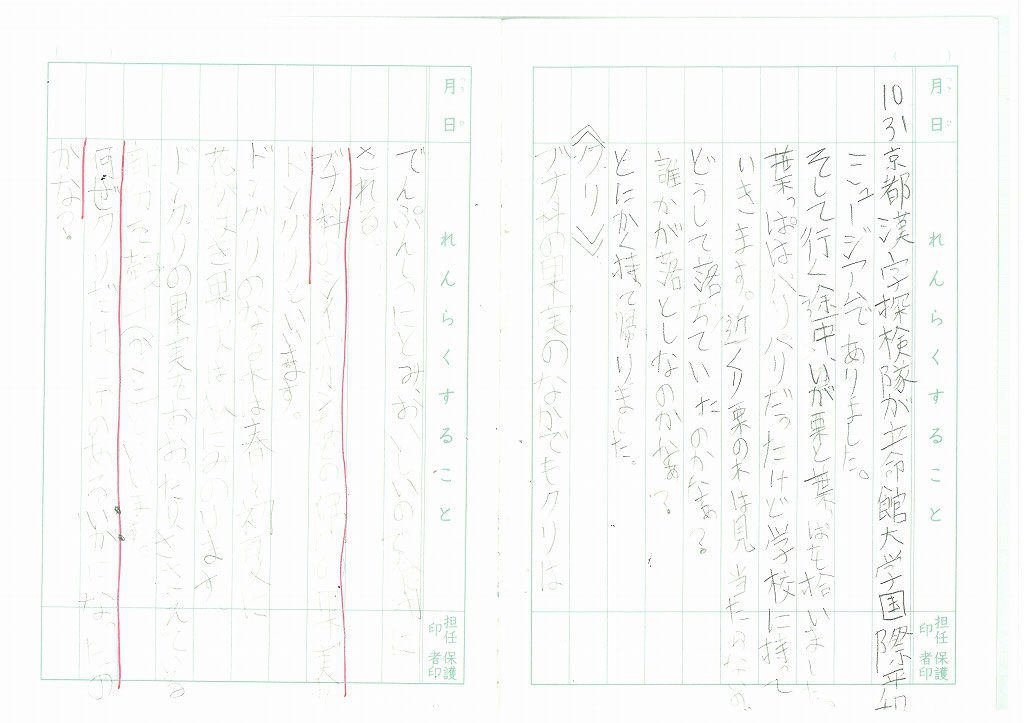 月 日
れんらくすること
担任印 保護者印
10 31 京都漢字探検隊が立命館大学国際平和
ミュージアムでありました。
そして行く途中、いが栗と葉っぱを拾いました。
葉っぱはパリパリだったけど学校に持って
いきます。近くり栗の木は見当たらないの
どうして落ちていたのかなぁ?
誰かが落としなのかかなぁ?
とにかく持って帰りました。
《クリ》
ブナ科の果実のなかでもクリは
月 日
れんらくすること
担任印 保護者印
でんぷんしつにとみ、おいしいので
される。
ブナ科のシイやカシなどの
ドングリといいます。
ドングリのなる木は春〜初夏に
花がさき果実は秋にみのります。
ドングリの果実をおおったりささえている
部分を殻斗(かくと)といいます。
何ぜクリだけ、そのいろいがになったの
かな?